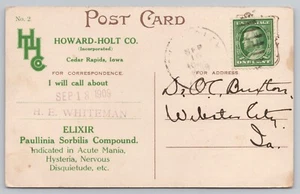 No. 2
POST CARD
HHCo
HOWARD-HOLT CO.
(Incorporated)
Cedar Rapids, Iowa
FOR CORRESPONDENCE
FOR ADDRESS
I will call about
SEP 13 1909
H. E. WHITEMAN
ELIXIR
Paullinia Sorbilis Compound.
Indicated in Acute Mania,
Hysteria, Nervous
Disquietude, etc.
SEP
Dr. O. C. Buxton,
Webster City,
Ia.